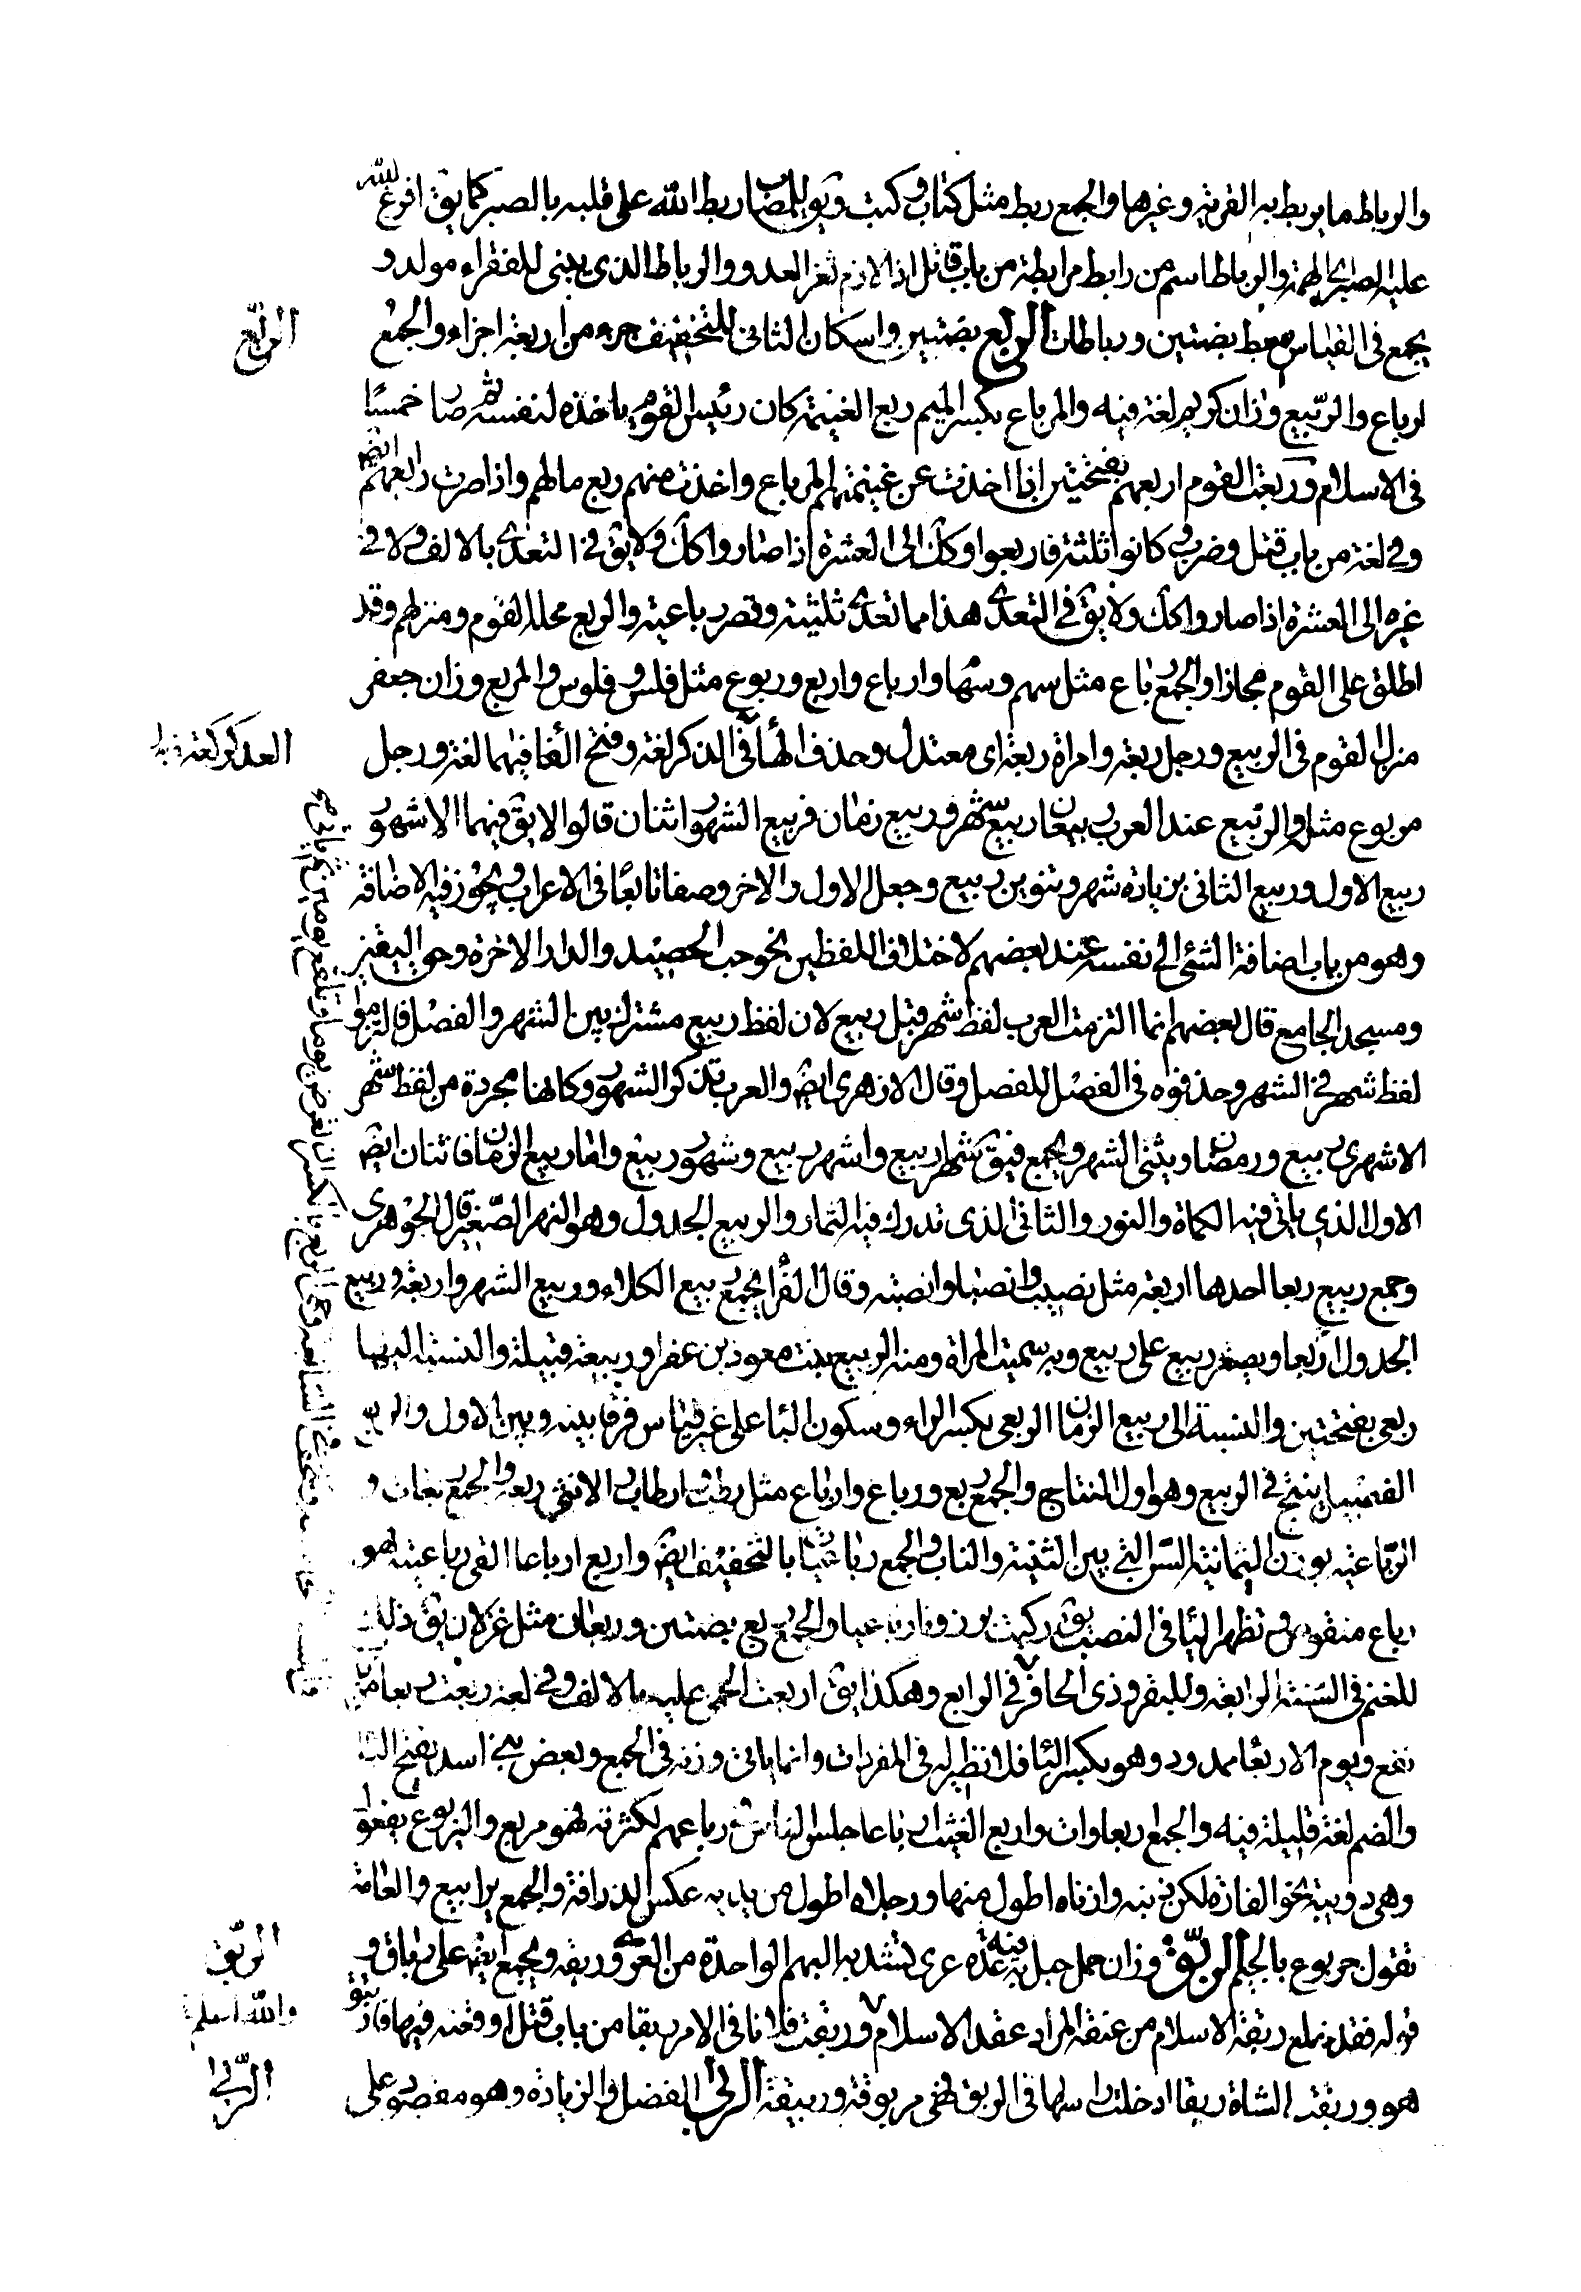 والرباط ما يربط به القربة وغيرها والجمع ربط مثل كتاب وكتب ويق للمصاب ربط الله على قلبه بالصبر كما يق افرغ الله
عليه الصبر الهمه والرباط اسم من رابط مرابطة من باب قاتل اذا لازم ثغر العدو والرباط الذى يبنى للفقراء مولد و
يجمع فى القياس ربط بضمتين ورباطات الربع بضمتين واسكان الثانى للتخفيف جزء من اربعة اجزاء والجمع
ارباع والربيع وزان كريم لغة فيه والمرباع بكسر الميم ربع الغنيمة كان رئيس القوم ياخذه لنفسه ثم صار خمسا
فى الاسلام وربعت القوم اربعهم بفتحتين اذا اخذت من غنيمتهم المرباع واخذت منهم ربع مالهم واذا صرت رابعهم ايضا
وفى لغة من باب قتل وضرب وكانوا ثلثة فاربعوا وكك الى العشرة اذا صاروا كك ولا يق فى التعدى بالالف ولا فى
غيره الى العشرة اذا صاروا كك ولا يق فى التعدى هذا مما تعدى ثلثيه وقصر رباعيه والربع محلة القوم ومنزلهم وقد
اطلق على القوم مجازا والجمع رباع مثل سهم وسهام وارباع واربع وربوع مثل فلس وفلوس والمربع وزان جعفر
منزل القوم فى الربيع ورجل ربعة وامراة ربعة اى معتدل وحذف الهاء فى المذكر لغة وفتح الباء فيهما لغة ورجل
مربوع مثله والربيع عند العرب ربيعان ربيع شهور وربيع زمان فربيع الشهور اثنان قالوا لا يق فيهما الا شهر
ربيع الاول وربيع الثانى بزيادة شهر وتنوين ربيع وجعل الاول والاخر وصفا تابعا فى الاعراب ويجوز فيه الاضافة
وهو من باب اضافة الشئ الى نفسه عند بعضهم لاختلاف اللفظين نحو حب الحصيد والدار الاخرة وحق اليقين
ومسجد الجامع قال بعضهم انما التزمت العرب لفظ شهر قبل ربيع لان لفظ ربيع مشترك بين الشهر والفصل فالتزموا
لفظ شهر فى الشهر وحذفوه فى الفصل للفصل وقال الازهرى ايضا والعرب تذكر الشهور كلها مجردة من لفظ شهر
الا شهرى ربيع ورمضان ويثنى الشهر ويجمع فيق شهرا ربيع واشهر ربيع وشهور ربيع واما ربيع الزمان فاثنان ايضا
الاول الذى ياتى فيه الكماة والنور والثانى الذى تدرك فيه الثمار والربيع الجدول وهو النهر الصغير قال الجوهرى
وجمع ربيع ربعا احدها اربعة مثل نصيب وانصبا وانصبة وقال الفرا يجمع ربيع الكلاء وربيع الشهر واربعة وربيع
الجدول اربعا ويصغر ربيع على ربيع وبه سميت المراة ومنه الربيع بنت معوذ بن عفرا وربيعة قبيلة والنسبة اليها
ربعى بفتحتين والنسبة الى ربيع الزمان الربعى بكسر الراء وسكون الباء على غير قياس فرقا بينه وبين الاول والربع
الفصيل ينتج فى الربيع وهو اول النتاج والجمع ربع ورباع وارباع مثل رطب وارطاب والانثى ربعة والجمع ربعات و
الرباعية بوزن الثمانية السن التى بين الثنية والناب والجمع رباعيات بالتخفيف ايضا واربع ارباعا القى رباعيته فهو
رباع منقوص وتظهر الياء فى النصب يق ركبت برذونا رباعيا والجمع ربع بضمتين وربعان مثل غزلان يق ذلك
للغنم فى السنة الرابعة وللبقر وذى الحافر فى الرابع وهكذا يق اربعت الحمى عليه بالالف وفى لغة ربعت ربعا من
نفع ويوم الاربعا ممدود وهو بكسر البا فلا نظير له فى المفردات وانما ياتى وزنه فى الجمع وبعض بنى اسد بفتح البا
والضم لغة قليلة فيه والجمع اربعاوات واربع الغيث ارباعا حبس الناس فى رباعهم لكثرته فهو مربع واليربوع يفعول
وهى دويبة نحو الفارة لكن ذنبه واذناه اطول منها ورجلاه اطول من يديه عكس الزرافة والجمع يرابيع والعامة
تقول جربوع بالجيم الربق وزان حمل حبل فيه عدة عرى تشد به البهم الواحدة من العرى ربقة ويجمع ايضا على رباق و
قوله فقد خلع ربقة الاسلام من عنقه المراد عقد الاسلام وربقت فلانا فى الامر ربقا من باب قتل اوقعته فيها فارتبق
هو وربقت الشاة ربقا ادخلت راسها فى الربق فهى مربوقة وربيقة الربا الفضل والزيادة وهو مقصور على
الربع
الربق
والله اعلم
الربا